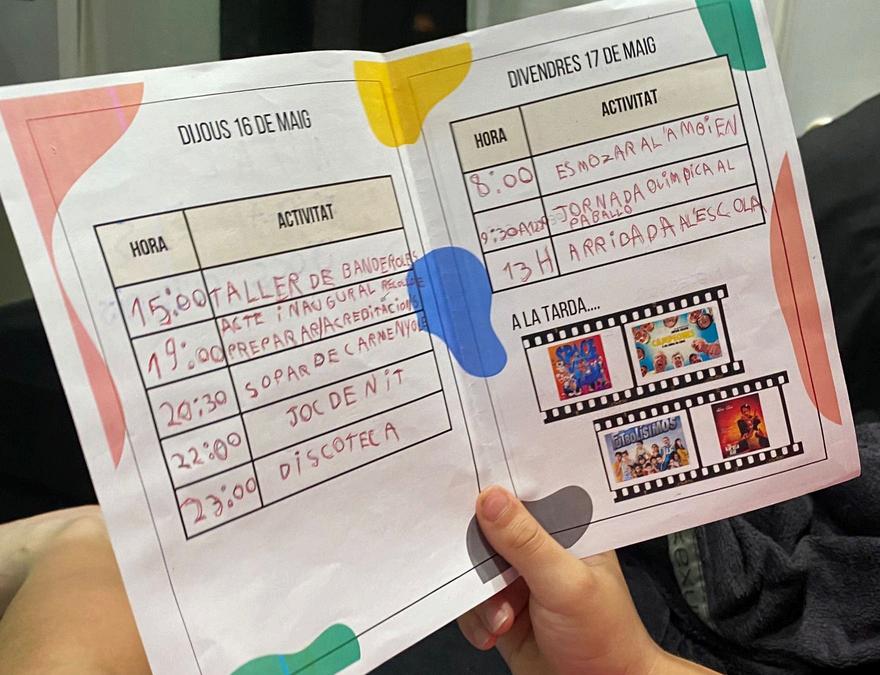 DIJOUS 16 DE MAIG
HORA ACTIVITAT
15:00 TALLER DE BANDEROLES
ACTE INAUGURAL RECOLLIDE
19:00 PREPARAR/ACREDITACIONS
20:30 SOPAR DE CARMENYOLE
22:00 JOC DE NIT
23:00 DISCOTECA
DIVENDRES 17 DE MAIG
HORA ACTIVITAT
8:00 ESMOZAR AL'AMBIEN
9:30A12A JORNADA OLIMPICA AL
PABALLO
13H ARRIBADA AL'ESCOLA
A LA TARDA....
SPACE
CAMPEONES
FUTBOLÍSIMOS